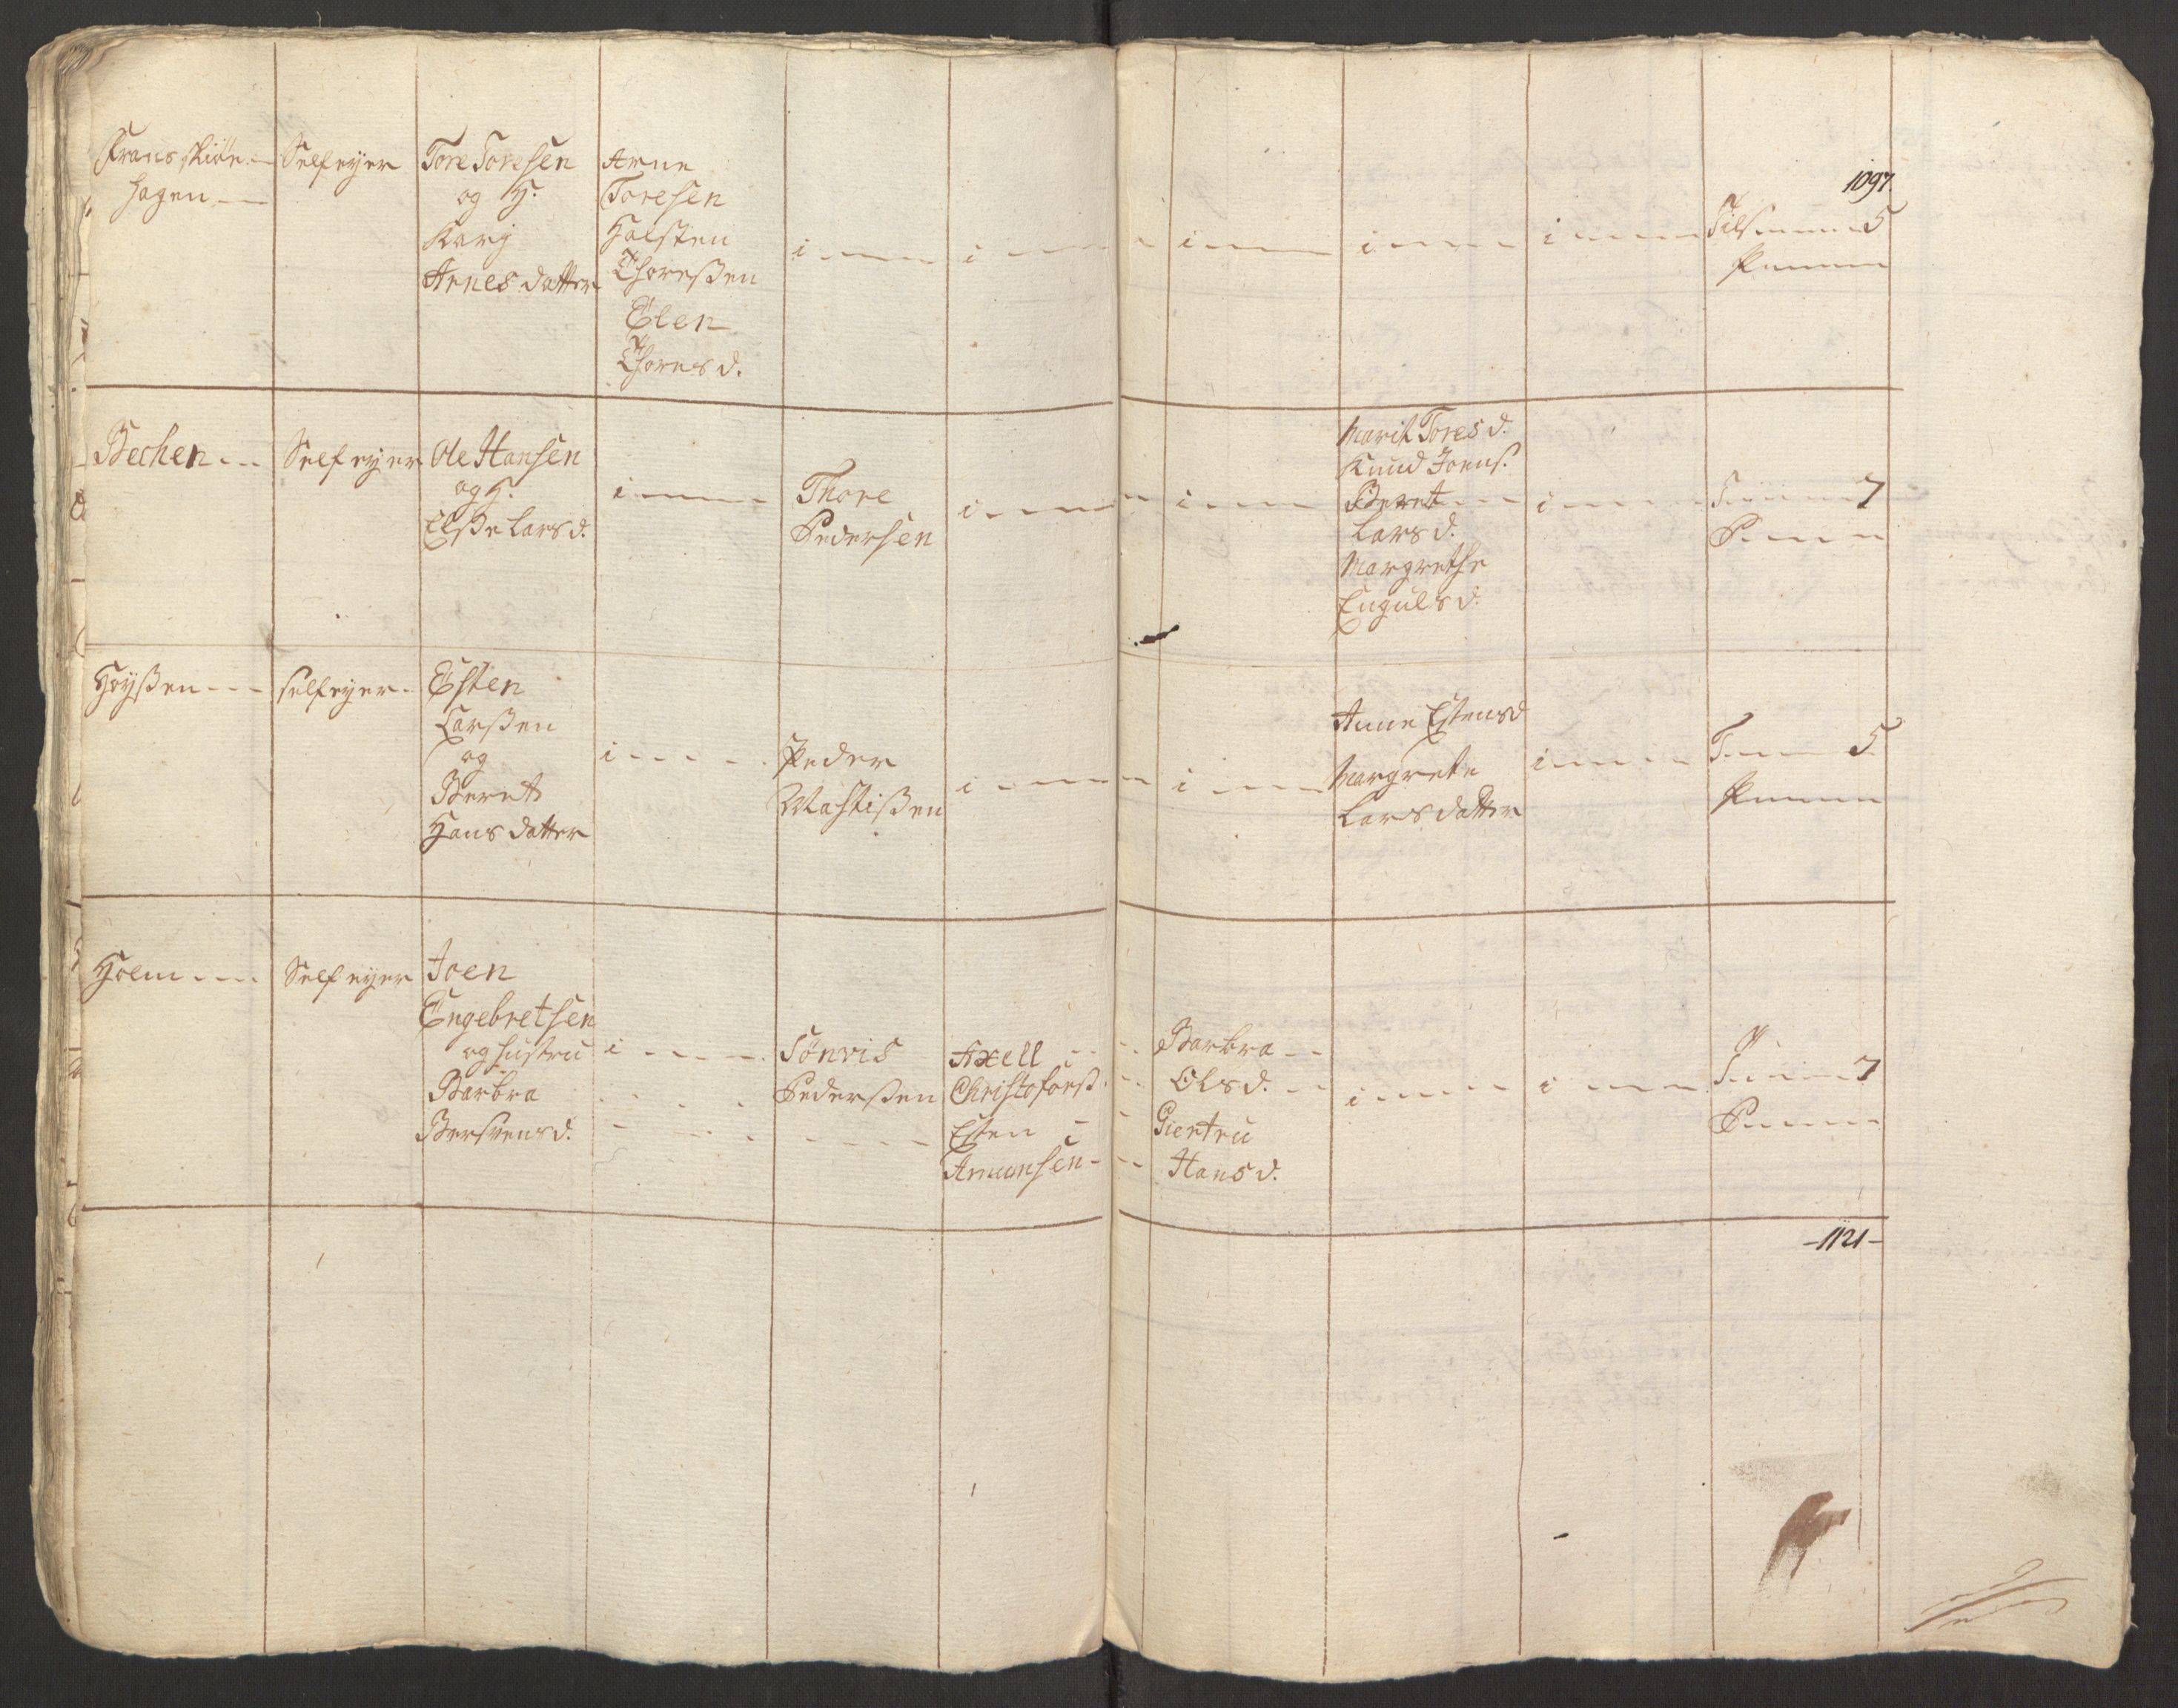 1097
Frans Skiøe
hagen
Selfeyer
Tore Toresen
og H:
Karj
Arnes datter
Arne
Toresen
Halsten
Thoreßen
Elen
Thores d.
i
i
i
i
i
5
Bechen
Selfeyer
Ole Hansen
og H.
Elße Lars d.
i
Thore
Pedersen
i
i
Marit Tores d.
Knud Joens.
Beret
Lars d.
Margrethe
Enguls d.
i
7
Høyßen
selfeyer
Esten
Larßen
og
Beret
Hans datter
i
Peder
Mastißen
i
i
Anne Estensd
Margrete
Lars datter
i
5
Holm
Selfeyer
Joen
Engebretsen
og hustru
Barbra
Bersvensd.
i
Sønvis
Pederßen
Axell
Christoforß.
Esten
Amunsen
Barbra
Ols d.
Giertru
Hans d.
i
i
7
-1121-